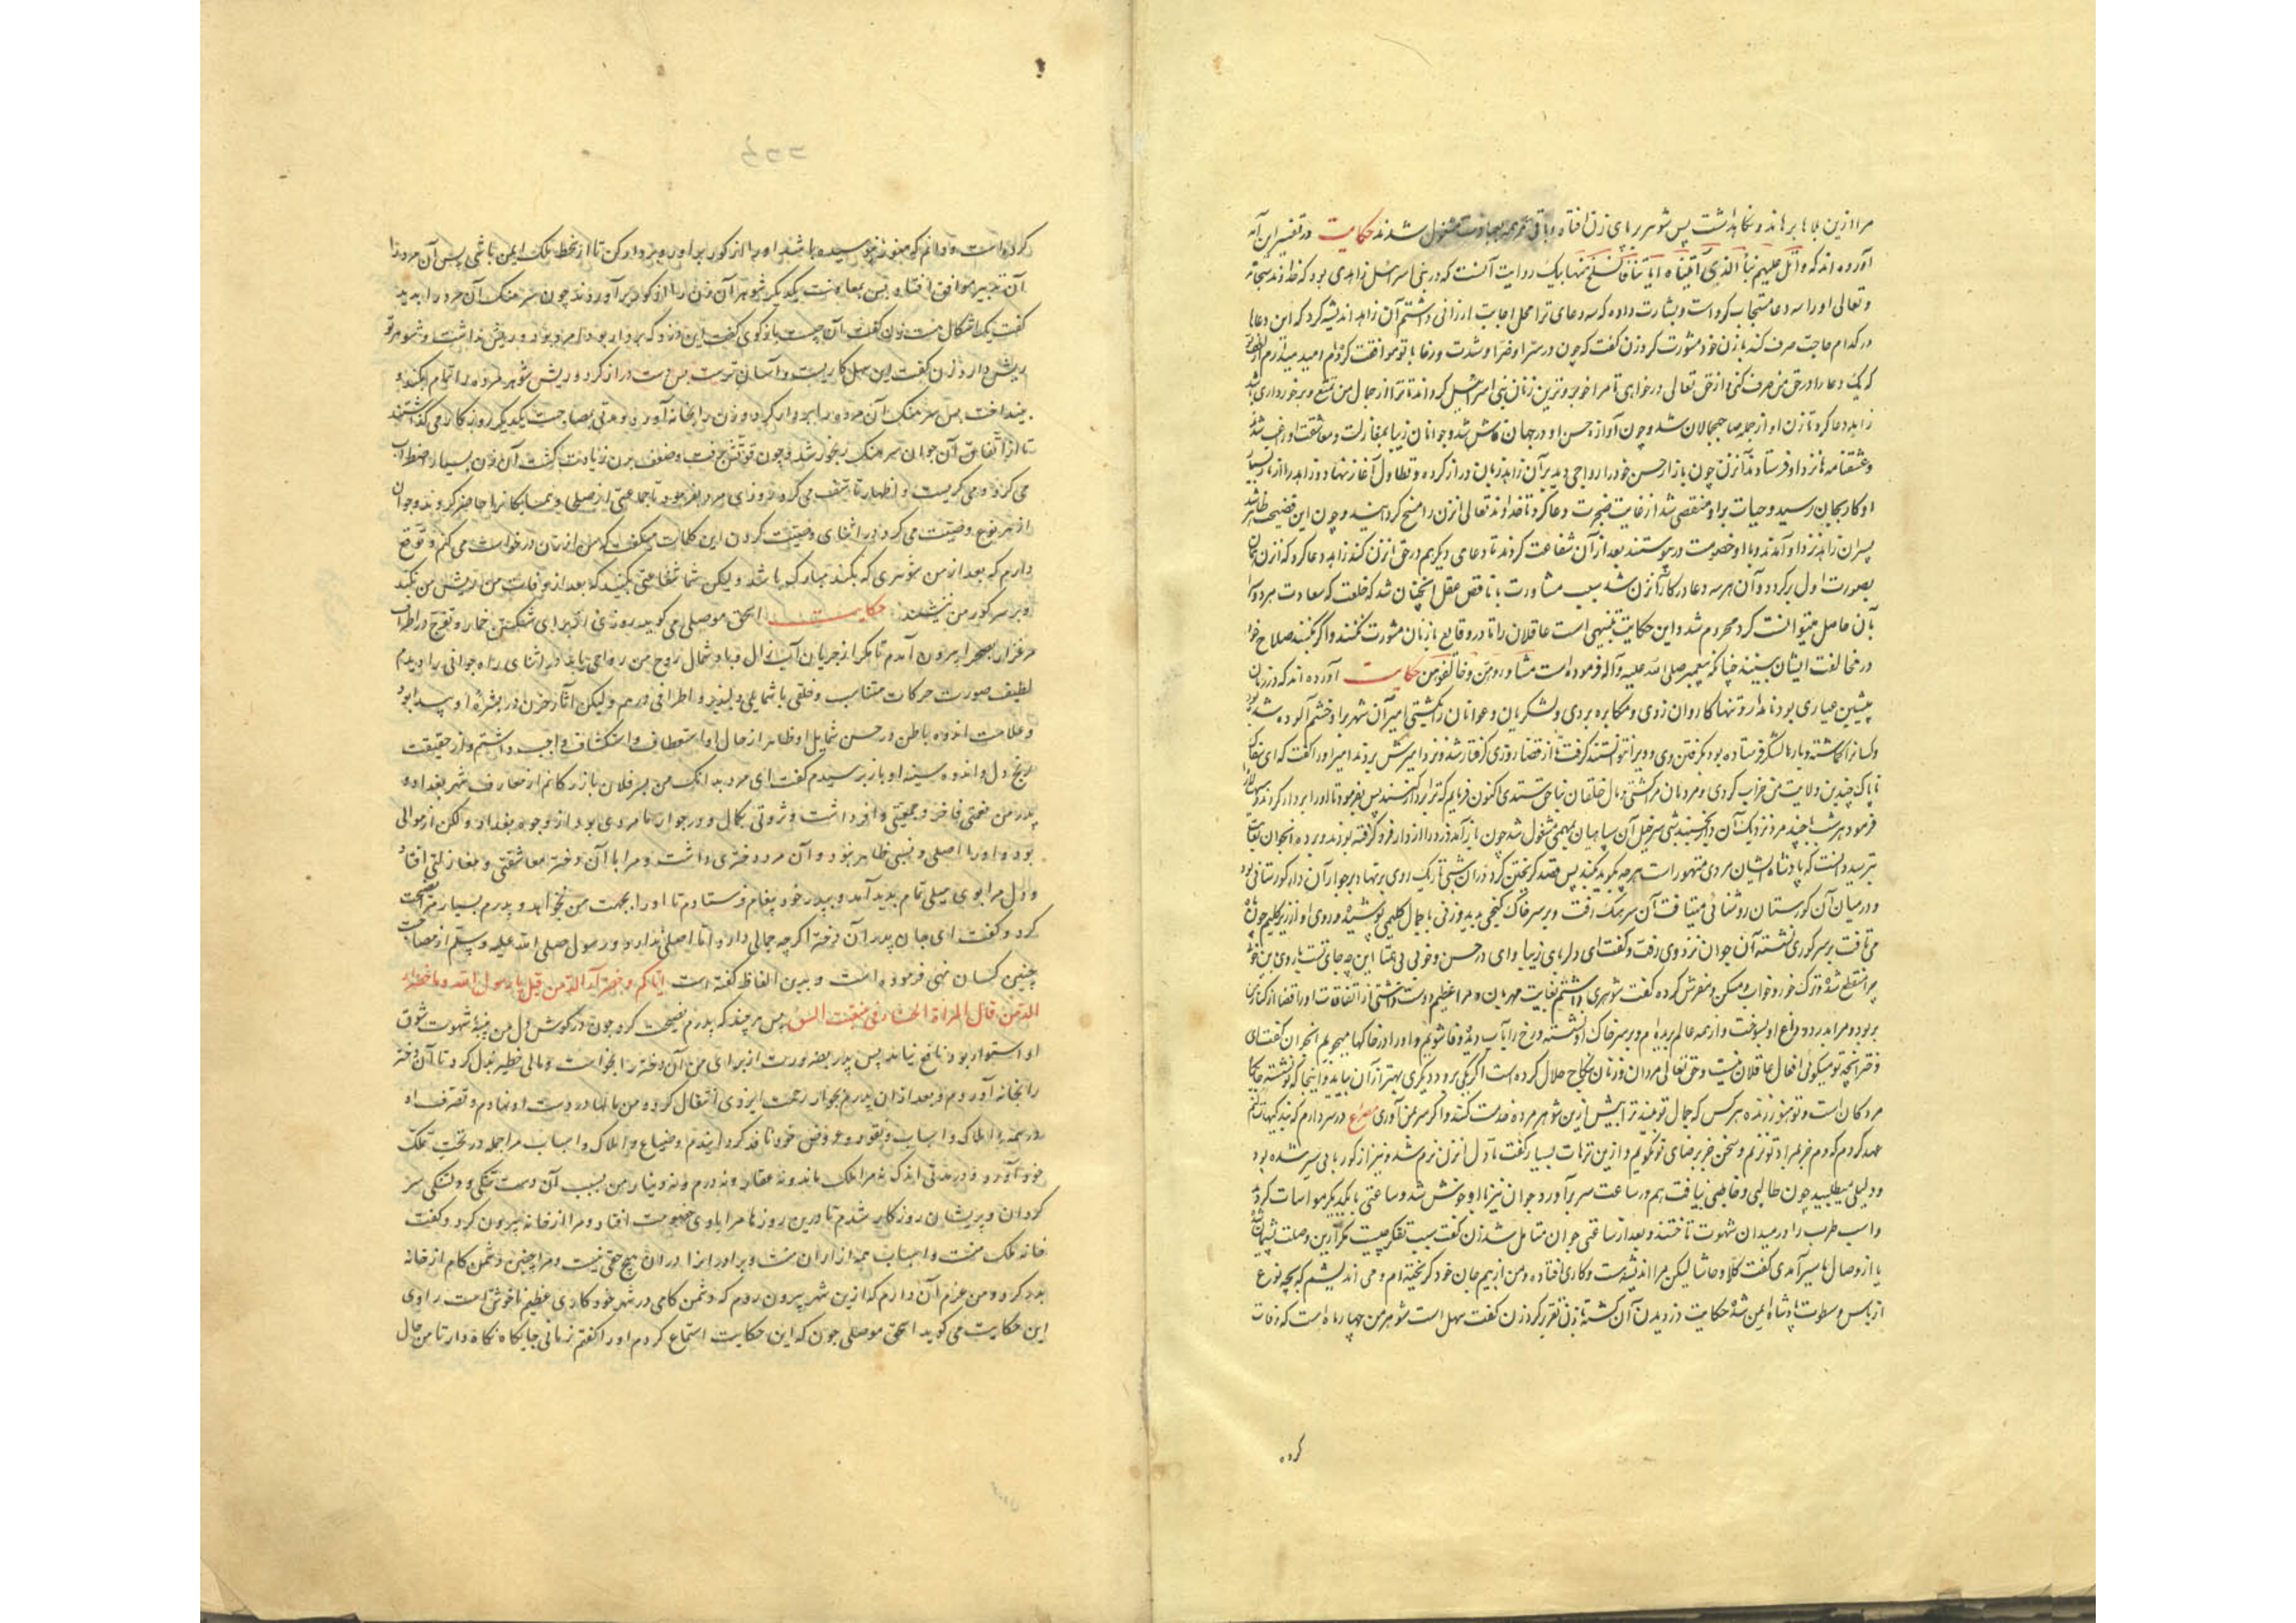 مرا ازین بلا برهاند و نگاه داشت پس شوهر برپای زن افتاد و باقی عمر همه بعبادت مشغول شدند حکایت در تفسیر این آیه
آورده اند که واتل علیهم نبأ الذی آتیناه آیاتنا فانسلخ منها یک روایت آنست که در بنی اسرائیل زاهدی بود که خداوند سبحانه
و تعالی او را سه دعا مستجاب کرده است و بشارت داده که سه دعای ترا محل اجابت ارزانی داشتم آن زاهد اندیشه کرد که این دعاها
در کدام حاجت صرف کند با زن خود مشورت کرد زن گفت که چون در سرّا و ضرّا و شدت و رخا با تو موافقت کرده‌ام امید میدارم
که یک دعا را در حق من صرف کنی و از حق تعالی درخواهی تا مرا خوبروترین زنان بنی اسرائیل گرداند تا ترا از جمال من تمتع و برخورداری باشد
زاهد دعا کرد تا زن او از جمله صاحب جمالان شد و چون آوازه حسن او در جهان فاش شد و جوانان زیبا بمغازلت و معاشقت او راغب شدند
و عشقنامه ها نزد او فرستادند آن زن چون بازار حسن خود را رواجی دید بر آن زاهد زبان دراز کرد و تطاول آغاز نهاد و زاهد را از
او کار بجان رسید و حیات بر او منغص شد از غایت ضجرت دعا کرد تا خداوند تعالی آن زن را مسخ گردانید و چون این فضیحت ظاهر شد
پسران زاهد نزد او آمدند و با او خصومت در پیوستند بعد از آن شفاعت کردند تا دعای دیگر هم در حق آن زن کند زاهد دعا کرد که آن زن
بصورت اول برگردد و آن هر سه دعا در کار آن زن شد بسبب مشاورت با ناقص عقل آنچنان شد که خلعت که سعادت هر دو سرا
بآن حاصل میتوانست کرد محروم شد و این حکایت تنبیهی است عاقلان را تا در وقایع با زنان مشورت نکنند و اگر بکنند صلاح خود
در مخالفت ایشان بینند چنانکه پیغمبر صلی الله علیه و آله فرموده است شاوروهن و خالفوهن حکایت آورده اند که در زمان
پیشین عیاری بود نامدار و تنها کاروان زدی و مکابره بردی و لشکریان و عوانان را بکشتی امیر آن شهر بر او خشم آلوده شده بود
و کسانرا گماشته و بارها لشکر فرستاده بود بگرفتن وی و ویرا نتوانستند گرفت تا از قضا روزی گرفتار شد و نزد امیرش بردند امیر او را گفت که ای
ناپاک چندین ولایت من خراب کردی و مردمان مرا کشتی و مال خلقان بناحق ستدی اکنون فرمایم که ترا بردار کنند پس بفرمود تا او را بردار کردند
فرمود هر شب چند مرد نزدیک آن دار بخسبند شبی سرخیل آن سپاهیان بمهمی مشغول شد چون باز آمد دزد را از دار فرو گرفته بودند و برده آن جوان بغایت
بترسید دانست که پادشاه ایشان مردی متهور است هرچه بگوید بکند پس قصد گریختن کرد در آن شبی تاریک روی بر نهاد و بر جوار آن دار گورستانی بود
و در میان آن گورستان روشنائی میتافت آن سرهنگ رفت و بر سر خاک کنجی بدید و زنی با جمال گلیمی پوشیده و روی او از زیر گلیم چون ماه
می تافت بر سر گوری نشسته آن جوان نزد وی رفت و گفت ای دلربای زیبا و ای در حسن و خوبی بی همتا این چه جای تست
گفت شوهری داشتم بغایت مهربان و مرا عظیم دوست داشتی از اتفاقات او را قضا از کنار من
بربود و مرا بدرد و داغ او بسوخت و از همه عالم بریده‌ام و بر سر خاک او نشسته و رخ را بآب دیده وفا شویم و او را در خاکها میجویم آن جوان گفت ای
دختر آنچه تو میگوئی افعال عاقلان نیست و حق تعالی مردان و زنان نکاح حلال کرده است اگر یکی برود دیگری بهتر از آن بیاید و اینجا که تو نشسته
مردگان است و تو هنوز زنده هر کس که جمال تو بیند ترا بیش ازین شوهر مرده خدمت کند و اگر سر بمن آوری مصراع در سر دارم که بندگیهات کنم
عهد کردم که دم جز بمراد تو نزنم و سخن جز برضای تو نگویم و ازین ترهات بسیار گفت تا دل آن زن نرم شد و نیز از گور بانی سیر شده بود
و دلیلی میطلبید چون طالبی و خاطبی بیافت هم در ساعت سر برآورد و جوان نیز با او خوش شد و ساعتی با یکدیگر مواسات کردند
و اسب طرب را در میدان شهوت تاختند و بعد از ساعتی جوان متأمل شد زن گفت سبب تفکر چیست مگر ازین وصلت پشیمان شدی
یا از وصال ما سیر آمدی گفت کلّا و حاشا لیکن مرا اندیشه ایست و کاری افتاده و من از بیم جان خود گریخته‌ام و می اندیشم که بچه نوع
از بأس و سطوت پادشاه ایمن شوم حکایت دزدیدن آن کشته با زن تقریر کرد زن گفت سهل است شوهر من چهار ماه است که وفات
کرده
کرده است و دانم که هنوز نپوسیده باشد او را از گور برآور و بردار کن تا از سخط ملک ایمن باشی پس آن مرد را
آن تدبیر موافق افتاد و پس بمعاونت یکدیگر شوهر آن زن را از گور برآوردند چون سرهنگ آن مرد را بدید
گفت یک اشکال هست زن گفت آن چیست بازگوی گفت این دزد که بردار بود امرد بود و ریش نداشت و شوهر تو
ریش دارد زن گفت این سهل کاریست و آسان ترست پس دست دراز کرد و ریش شوهر مرده را تمام بکند و
بینداخت پس سرهنگ آن مرده را بردار کرد و زن را بخانه آورد و مدتی بمصاحبت یکدیگر روزگار می گذاشتند
تا از اتفاق آن جوان سرهنگ رنجور شد و چون قوتش برفت و ضعف بدن زیادت گشت آن زن بسیار اضطراب
می کرد و می گریست و اظهار تأسف می کرد روزی مرد بفرمود تا جماعتی از صلحا و همسایگانرا حاضر کردند و جوان
از هر نوع وصیت می کرد در اثنای وصیت کردن این کلمات میگفت که من از زنان درخواست می کنم و توقع
دارم که بعد از من شوهری که بکند مبارک باشد ولیکن شما شفاعتی بکنید که بعد از وفات من ریش من نکند
و بر سر گور من ننشیند حکایت اسحق موصلی می گوید روزی از برای شکستن خمار و تفرج در اطراف
مرغزار بصحرا بیرون آمدم تا مگر از جریان آب زلال و باد شمال روح من راحتی یابد در اثنای راه جوانی را دیدم
لطیف صورت حرکات متناسب و خلقی با شمایلی دلپذیر و اطرافی درهم ولیکن آثار حزن در بشره او پیدا بود
و علامت اندوه باطن در حسن شمایل او ظاهر از حال او استعطاف و استکشاف واجب داشتم و از حقیقت
رنج دل و اندوه سینه او باز پرسیدم گفت ای مرد بدانک من پسر فلان بازرگانم از معارف شهر بغداد و
پدر من نعمتی فاخر و جمعیتی وافر داشت و ثروتی بکمال و در جوار ما مردی بود از وجوه بغداد و لکن از موالی
بود و او را اصلی و نسبی ظاهر نبود و آن مرد دختری داشت و مرا با آن دختر معاشقتی و مغازلتی افتاد
و دل مرا بوی میلی تمام پدید آمد و بپدر خود پیغام فرستادم تا او را بجهت من بخواهد و پدرم بسیار مرا نصیحت
کرد و گفت ای جان پدر آن دختر اگرچه جمالی دارد اما اصلی ندارد و رسول صلی الله علیه و سلم از مصاحبت
چنین کسان نهی فرموده است و بدین الفاظ گفته است ایاکم و خضراء الدمن قیل یا رسول الله و ما خضراء
الدمن قال المرأة الحسناء فی منبت السوء پس هرچند که پدرم نصیحت کرد چون در گوش دل من پنبه شهوت ذوق
او استوار بود نافع نیامد پس پدر بضرورت از برای من آن دختر را بخواست و مالی خطیر بذل کرد تا آن دختر
را بخانه آوردم و بعد از آن پدرم بجوار رحمت ایزدی انتقال کرد و من مالها در دست او نهادم و تصرف او
در همه املاک و اسباب و نقود و عروض خود نافذ گردانیدم و ضیاع و املاک و اسباب مرا جمله در تحت تملک
خود آورد و در مدتی اندک نه مرا ملک ماند و نه عقار و نه درم و نه دینار من بسبب آن دست تنگی و دلتنگی سر
گردان و پریشان روزگار شدم تا درین روزها مرا با وی خصومت افتاد و مرا از خانه بیرون کرد و گفت
خانه ملک منست و اسباب همه از آن منست و برادر ترا در آن هیچ حقی نیست و مرا چنین دشمن کام از خانه
بدر کرد و من عزم آن دارم که ازین شهر بیرون روم که دشمن کامی در شهر خود کاری عظیم ناخوش است راوی
این حکایت می گوید اسحق موصلی چون که این حکایت استماع کردم او را گفتم زمانی جایگاه نگاه دار تا من حال